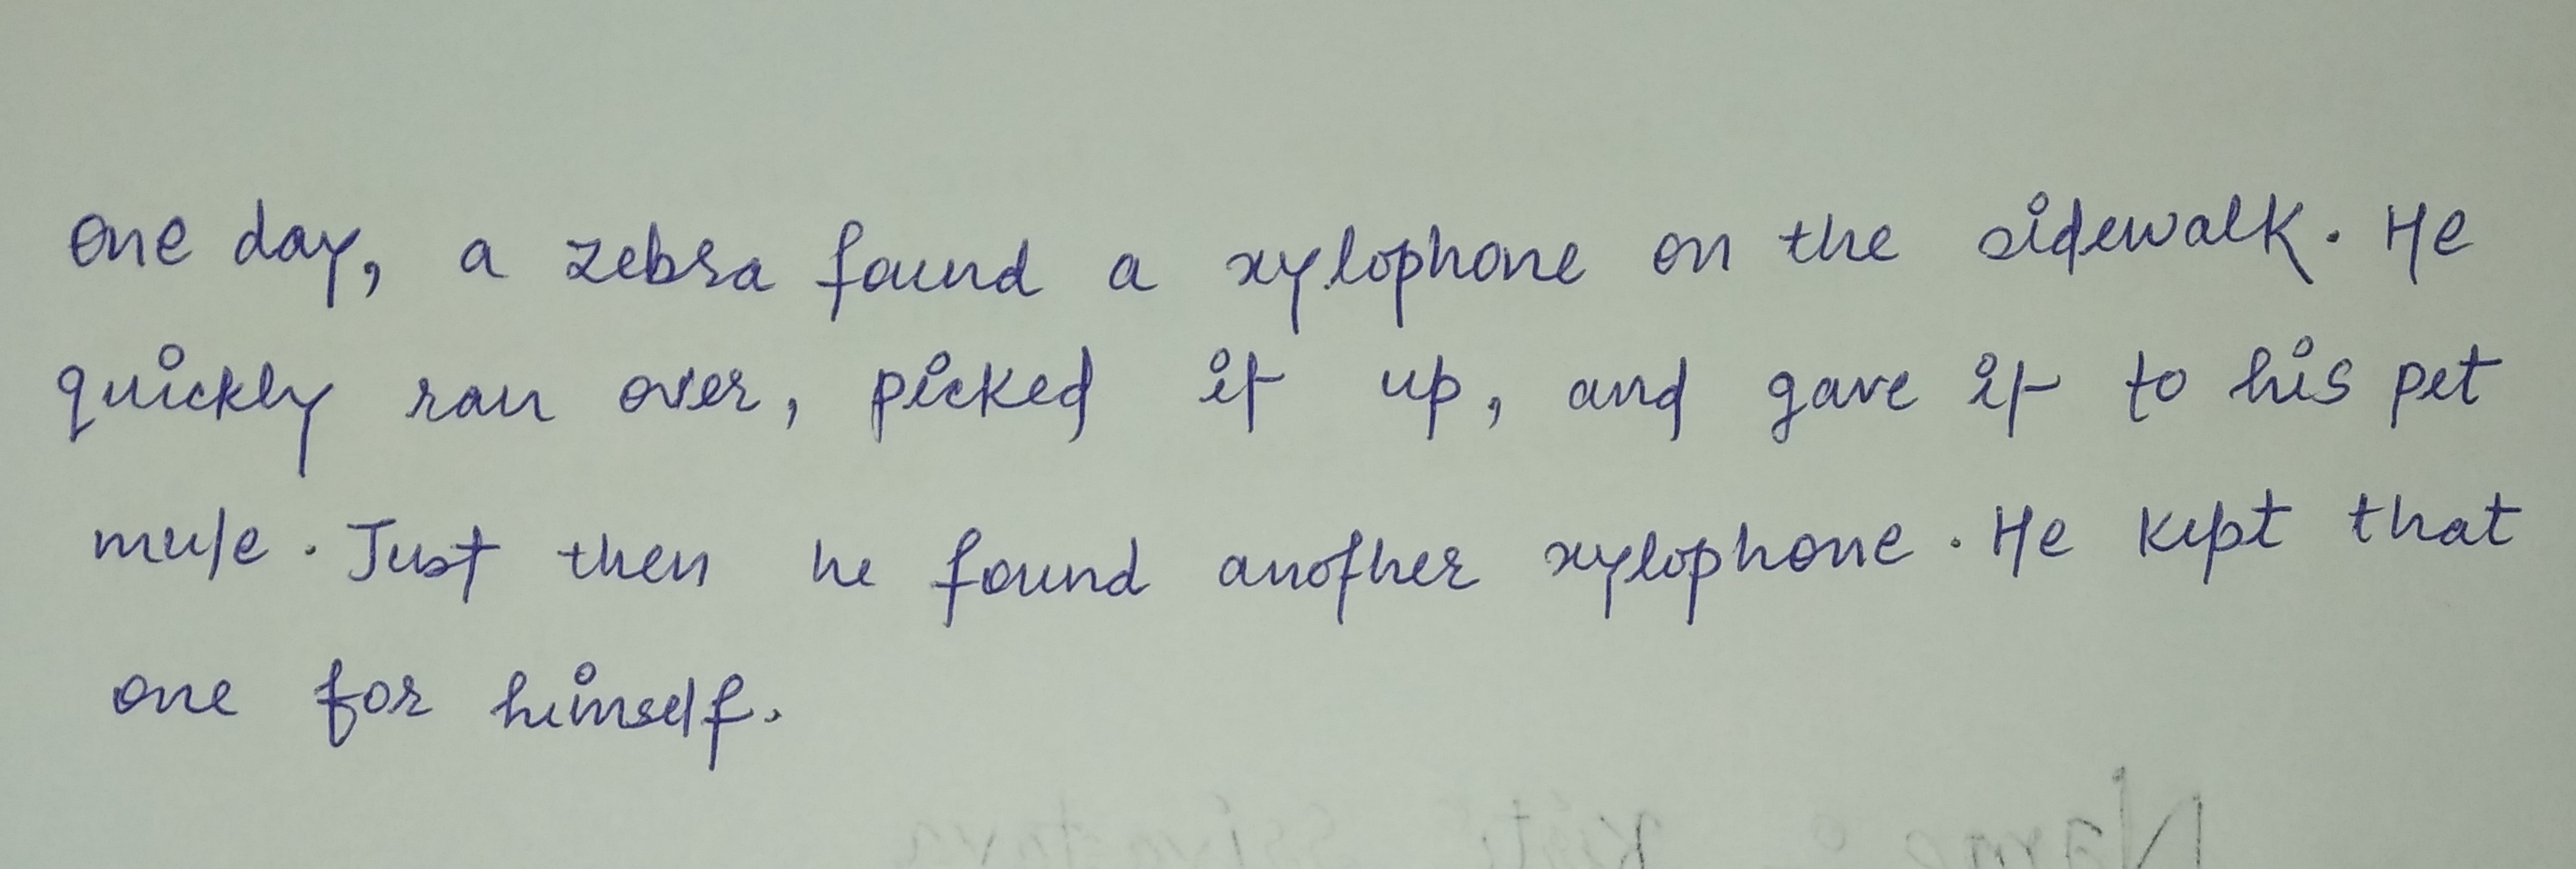 One day, a zebra found a xylophone on the sidewalk. He
quickly ran over, picked it up, and gave it to his pet
mule. Just then he found another xylophone. He kept that
one for himself.
Name